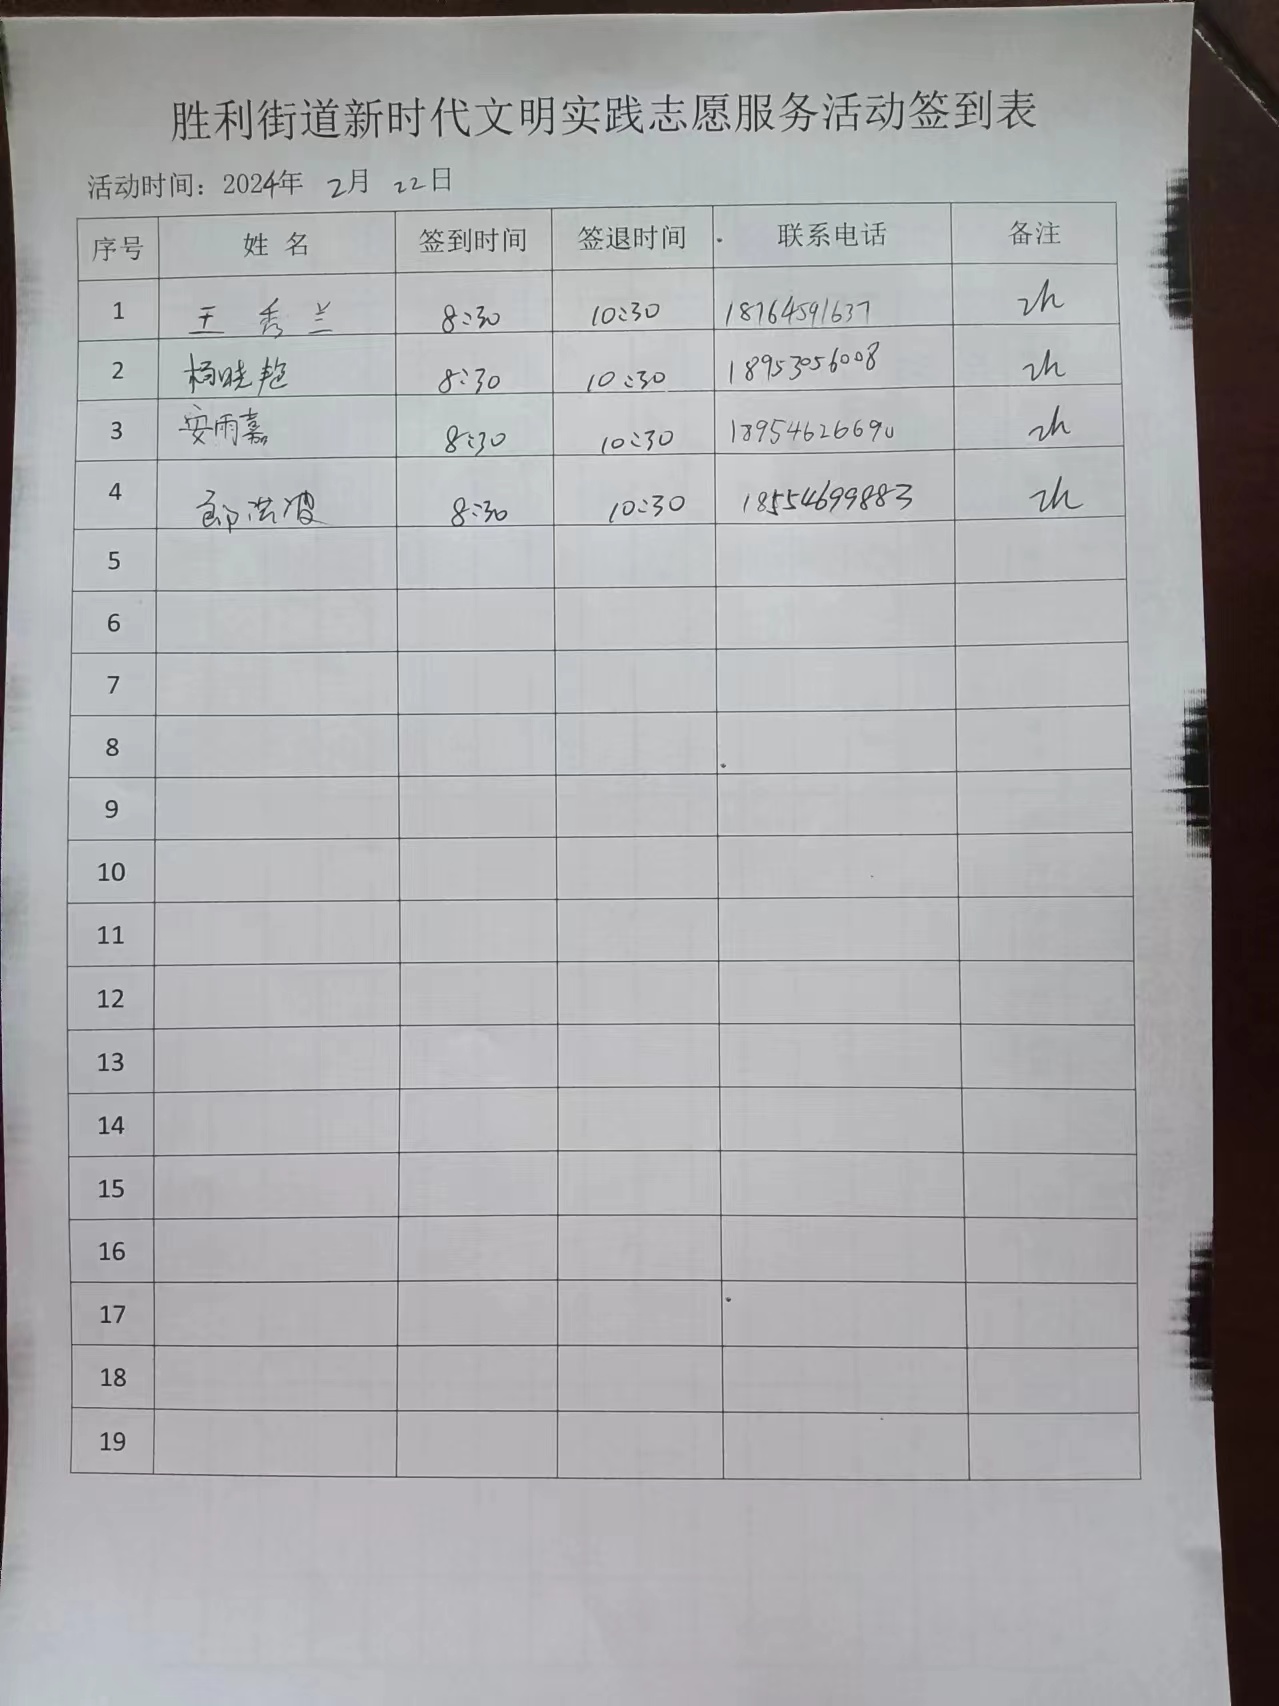 胜利街道新时代文明实践志愿服务活动签到表
活动时间：2024年 2月 22日
序号 姓 名 签到时间 签退时间 联系电话 备注
1 王 秀 兰 8:30 10:30 18764591637 2h
2 杨晓艳 8:30 10:30 18953056008 2h
3 安雨嘉 8:30 10:30 18954626690 2h
4 郎洪波 8:30 10:30 18554699883 2h
5
6
7
8
9
10
11
12
13
14
15
16
17
18
19